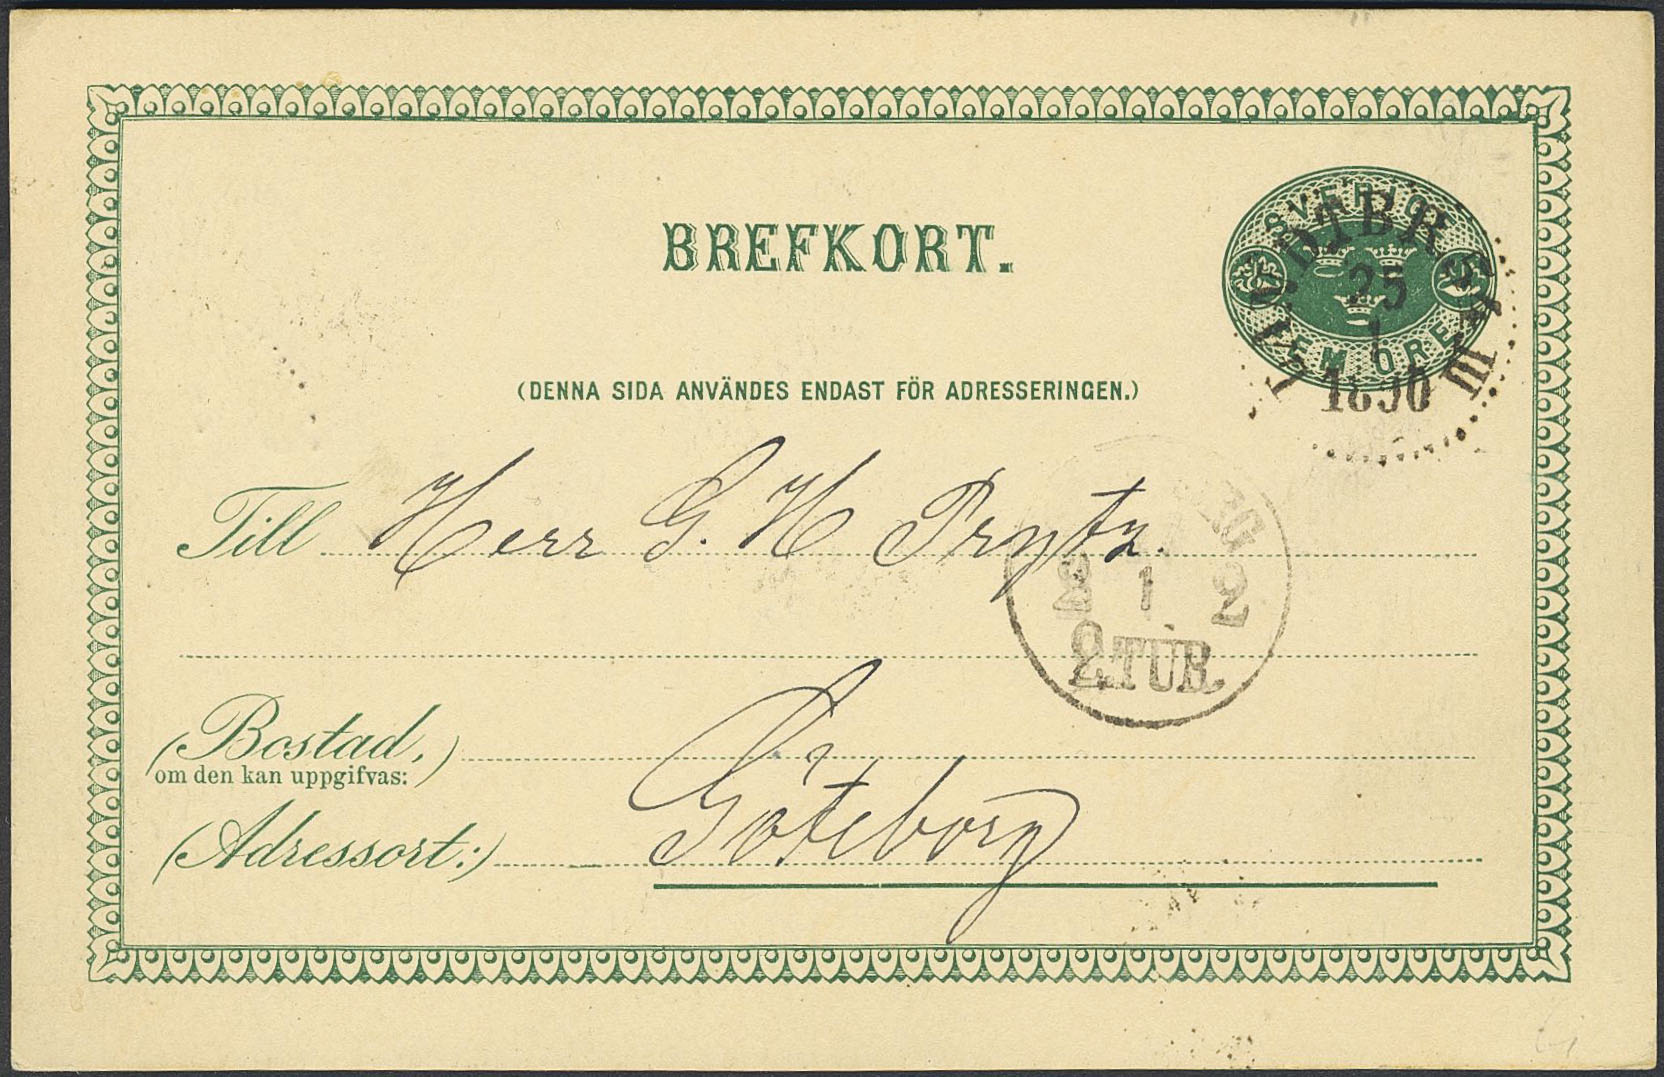 BREFKORT.
SVERIGE
FEM ÖRE
25
1
1890
(DENNA SIDA ANVÄNDES ENDAST FÖR ADRESSERINGEN.)
Till Herr G. H Prytz.
1 2
2.TUR.
(Bostad,)
om den kan uppgifvas:
(Adressort:) Göteborg